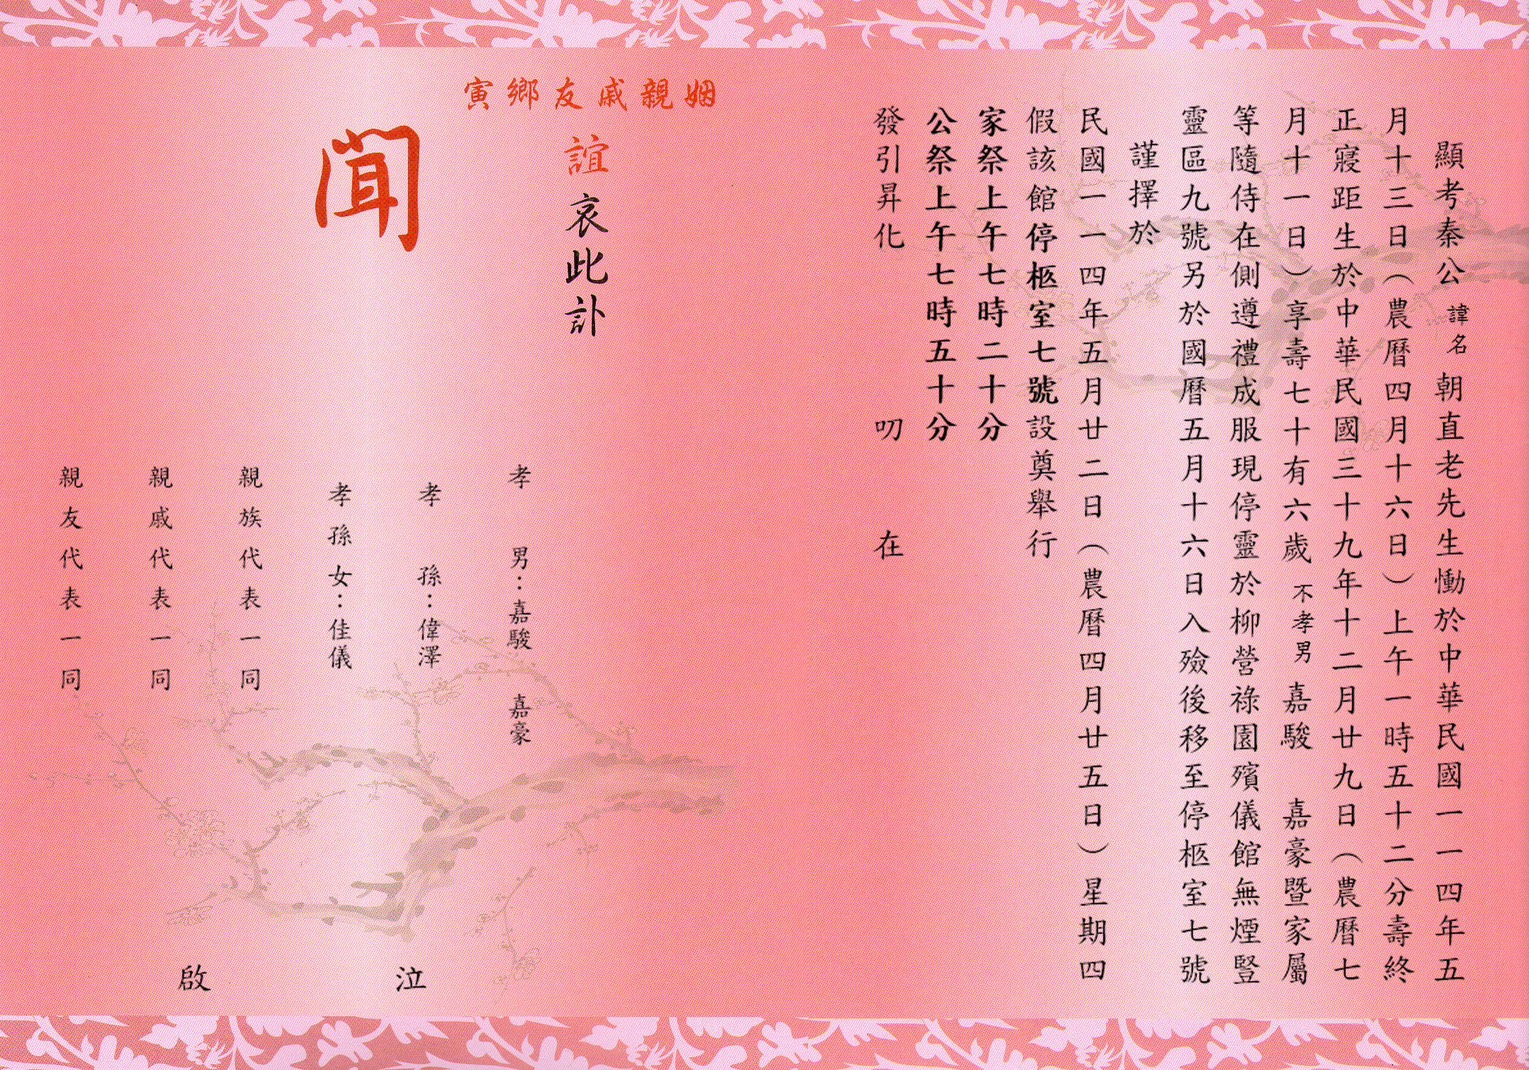 顯考秦公諱名朝直老先生慟於中華民國一一四年五
月十三日（農曆四月十六日）上午一時五十二分壽終
正寢距生於中華民國三十九年十二月廿九日（農曆七
月十一日）享壽七十有六歲不孝男嘉駿 嘉豪暨家屬
等隨侍在側遵禮成服現停靈於柳營祿園殯儀館無煙豎
靈區九號另於國曆五月十六日入殮後移至停柩室七號
謹擇於
民國一一四年五月廿二日（農曆四月廿五日）星期四
假該館停柩室七號設奠舉行
家祭上午七時二十分
公祭上午七時五十分
發引昇化 叨 在
姻親戚友鄉寅
誼哀此訃
聞
孝 男：嘉駿 嘉豪
孝 孫：偉澤
孝孫女：佳儀
親族代表一同
親戚代表一同
親友代表一同
泣 啟